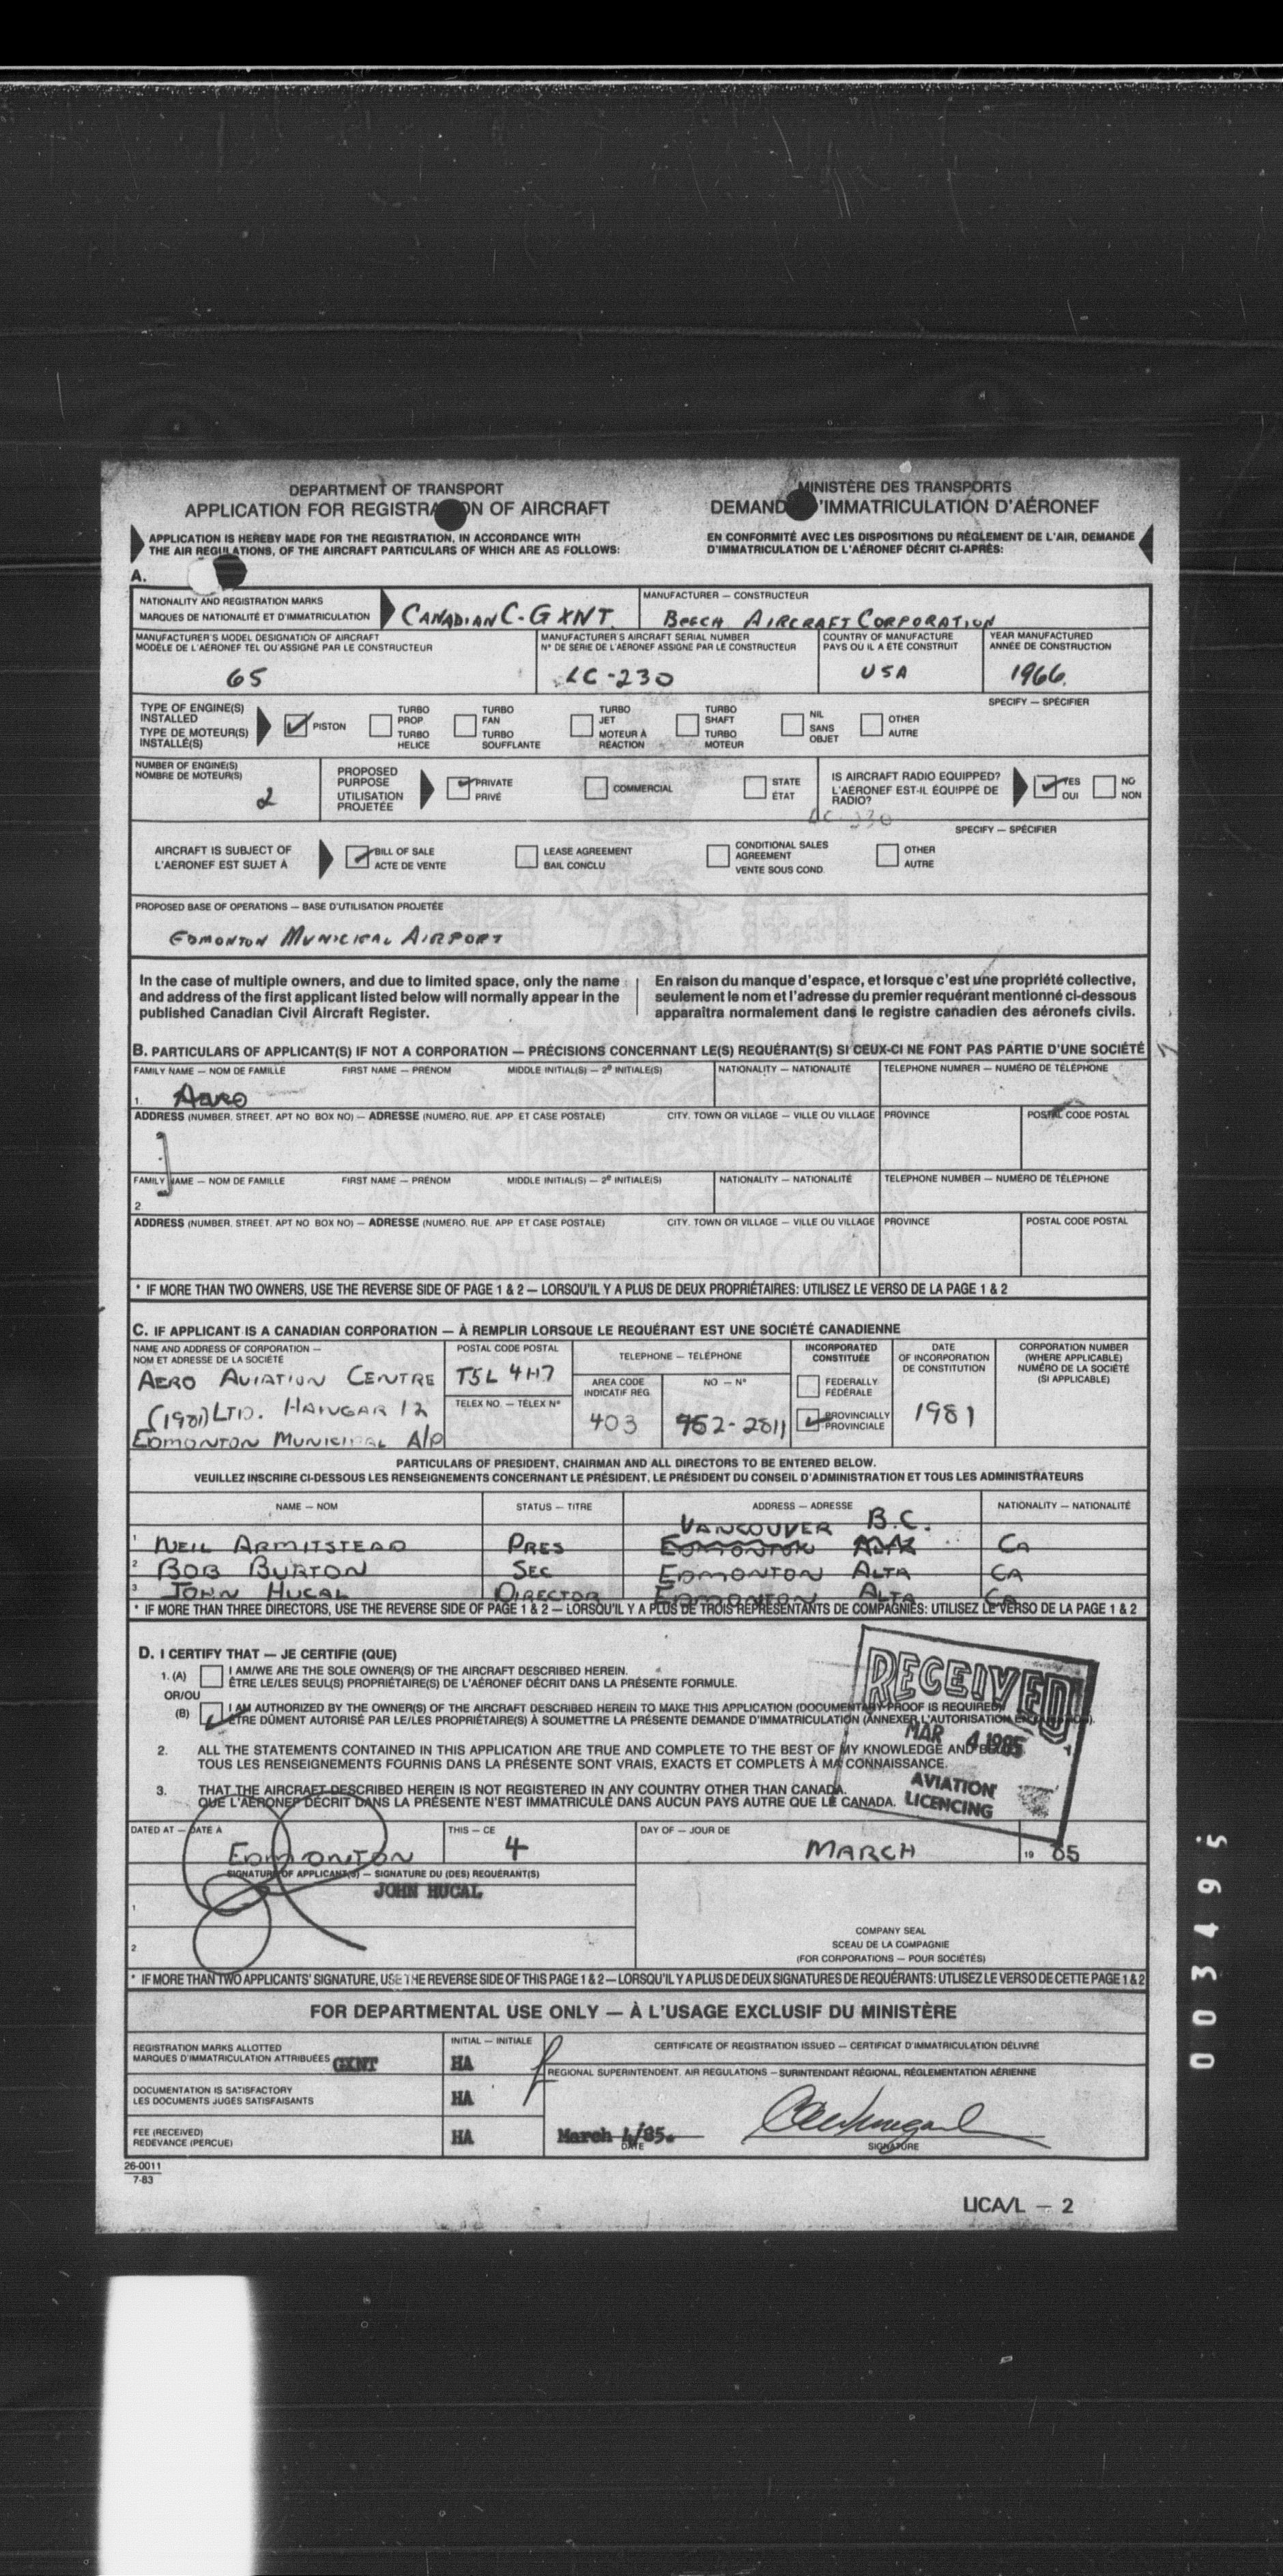 DEPARTMENT OF TRANSPORT
APPLICATION FOR REGISTRA ON OF AIRCRAFT
MINISTÈRE DES TRANSPORTS
DEMAND 'IMMATRICULATION D'AÉRONEF
APPLICATION IS HEREBY MADE FOR THE REGISTRATION, IN ACCORDANCE WITH
THE AIR REGULATIONS, OF THE AIRCRAFT PARTICULARS OF WHICH ARE AS FOLLOWS:
EN CONFORMITÉ AVEC LES DISPOSITIONS DU RÈGLEMENT DE L'AIR, DEMANDE
D'IMMATRICULATION DE L'AÉRONEF DÉCRIT CI-APRÈS:
A.
NATIONALITY AND REGISTRATION MARKS
MARQUES DE NATIONALITÉ ET D'IMMATRICULATION
CANADIAN C-GXNT.
MANUFACTURER — CONSTRUCTEUR
BEECH AIRCRAFT CORPORATION
MANUFACTURER'S MODEL DESIGNATION OF AIRCRAFT
MODÈLE DE L'AÉRONEF TEL QU'ASSIGNÉ PAR LE CONSTRUCTEUR
65
MANUFACTURER'S AIRCRAFT SERIAL NUMBER
Nº DE SÉRIE DE L'AÉRONEF ASSIGNÉ PAR LE CONSTRUCTEUR
LC-230
COUNTRY OF MANUFACTURE
PAYS OÙ IL A ÉTÉ CONSTRUIT
USA
YEAR MANUFACTURED
ANNÉE DE CONSTRUCTION
1966
TYPE OF ENGINE(S)
INSTALLED
TYPE DE MOTEUR(S)
INSTALLÉ(S)
PISTON
TURBO
PROP
TURBO
HELICE
TURBO
FAN
TURBO
SOUFFLANTE
TURBO
JET
MOTEUR À
RÉACTION
TURBO
SHAFT
TURBO
MOTEUR
NIL
SANS
OBJET
OTHER
AUTRE
SPECIFY — SPÉCIFIER
NUMBER OF ENGINE(S)
NOMBRE DE MOTEUR(S)
2
PROPOSED
PURPOSE
UTILISATION
PROJETÉE
PRIVATE
PRIVÉ
COMMERCIAL
STATE
ÉTAT
IS AIRCRAFT RADIO EQUIPPED?
L'AÉRONEF EST-IL ÉQUIPPÉ DE
RADIO?
YES
OUI
NO
NON
LC-230
AIRCRAFT IS SUBJECT OF
L'AERONEF EST SUJET À
BILL OF SALE
ACTE DE VENTE
LEASE AGREEMENT
BAIL CONCLU
CONDITIONAL SALES
AGREEMENT
VENTE SOUS COND.
OTHER
AUTRE
SPECIFY — SPÉCIFIER
PROPOSED BASE OF OPERATIONS — BASE D'UTILISATION PROJETÉE
EDMONTON MUNICIPAL AIRPORT
In the case of multiple owners, and due to limited space, only the name
and address of the first applicant listed below will normally appear in the
published Canadian Civil Aircraft Register.
En raison du manque d'espace, et lorsque c'est une propriété collective,
seulement le nom et l'adresse du premier requérant mentionné ci-dessous
apparaîtra normalement dans le registre canadien des aéronefs civils.
B. PARTICULARS OF APPLICANT(S) IF NOT A CORPORATION — PRÉCISIONS CONCERNANT LE(S) REQUÉRANT(S) SI CEUX-CI NE FONT PAS PARTIE D'UNE SOCIÉTÉ
FAMILY NAME — NOM DE FAMILLE FIRST NAME — PRÉNOM MIDDLE INITIAL(S) — 2e INITIALE(S) NATIONALITY — NATIONALITÉ TELEPHONE NUMBER — NUMÉRO DE TÉLÉPHONE
1. AERO
ADDRESS (NUMBER, STREET, APT NO. BOX NO) — ADRESSE (NUMÉRO, RUE, APP. ET CASE POSTALE) CITY, TOWN OR VILLAGE — VILLE OU VILLAGE PROVINCE POSTAL CODE POSTAL
FAMILY NAME — NOM DE FAMILLE FIRST NAME — PRÉNOM MIDDLE INITIAL(S) — 2e INITIALE(S) NATIONALITY — NATIONALITÉ TELEPHONE NUMBER — NUMÉRO DE TÉLÉPHONE
2
ADDRESS (NUMBER, STREET, APT NO. BOX NO) — ADRESSE (NUMÉRO, RUE, APP. ET CASE POSTALE) CITY, TOWN OR VILLAGE — VILLE OU VILLAGE PROVINCE POSTAL CODE POSTAL
* IF MORE THAN TWO OWNERS, USE THE REVERSE SIDE OF PAGE 1 & 2 — LORSQU'IL Y A PLUS DE DEUX PROPRIÉTAIRES: UTILISEZ LE VERSO DE LA PAGE 1 & 2
C. IF APPLICANT IS A CANADIAN CORPORATION — À REMPLIR LORSQUE LE REQUÉRANT EST UNE SOCIÉTÉ CANADIENNE
NAME AND ADDRESS OF CORPORATION —
NOM ET ADRESSE DE LA SOCIÉTÉ
AERO AVIATION CENTRE
(1981) LTD. HANGAR 12
EDMONTON MUNICIPAL A/P
POSTAL CODE POSTAL
T5L 4H7
TELEX NO. — TÉLEX Nº
TELEPHONE — TÉLÉPHONE
AREA CODE
INDICATIF RÉG.
403
NO — Nº
452-2811
INCORPORATED
CONSTITUÉE
FEDERALLY
FÉDÉRALE
PROVINCIALLY
PROVINCIALE
DATE
OF INCORPORATION
DE CONSTITUTION
1981
CORPORATION NUMBER
(WHERE APPLICABLE)
NUMÉRO DE LA SOCIÉTÉ
(SI APPLICABLE)
PARTICULARS OF PRESIDENT, CHAIRMAN AND ALL DIRECTORS TO BE ENTERED BELOW.
VEUILLEZ INSCRIRE CI-DESSOUS LES RENSEIGNEMENTS CONCERNANT LE PRÉSIDENT, LE PRÉSIDENT DU CONSEIL D'ADMINISTRATION ET TOUS LES ADMINISTRATEURS
NAME — NOM STATUS — TITRE ADDRESS — ADRESSE NATIONALITY — NATIONALITÉ
VANCOUVER B.C.
1 NEIL ARMITSTEAD PRES EDMONTON ALTA CA
2 BOB BURTON SEC EDMONTON ALTA CA
3 JOHN HUCAL DIRECTOR EDMONTON ALTA CA
* IF MORE THAN THREE DIRECTORS, USE THE REVERSE SIDE OF PAGE 1 & 2 — LORSQU'IL Y A PLUS DE TROIS REPRÉSENTANTS DE COMPAGNIES: UTILISEZ LE VERSO DE LA PAGE 1 & 2
D. I CERTIFY THAT — JE CERTIFIE (QUE)
1. (A) I AM/WE ARE THE SOLE OWNER(S) OF THE AIRCRAFT DESCRIBED HEREIN.
ÊTRE LE/LES SEUL(S) PROPRIÉTAIRE(S) DE L'AÉRONEF DÉCRIT DANS LA PRÉSENTE FORMULE.
OR/OU
(B) I AM AUTHORIZED BY THE OWNER(S) OF THE AIRCRAFT DESCRIBED HEREIN TO MAKE THIS APPLICATION (DOCUMENTARY PROOF IS REQUIRED)
ÊTRE DÛMENT AUTORISÉ PAR LE/LES PROPRIÉTAIRE(S) À SOUMETTRE LA PRÉSENTE DEMANDE D'IMMATRICULATION (ANNEXER L'AUTORISATION
2. ALL THE STATEMENTS CONTAINED IN THIS APPLICATION ARE TRUE AND COMPLETE TO THE BEST OF MY KNOWLEDGE AND
TOUS LES RENSEIGNEMENTS FOURNIS DANS LA PRÉSENTE SONT VRAIS, EXACTS ET COMPLETS À MA CONNAISSANCE.
3. THAT THE AIRCRAFT DESCRIBED HEREIN IS NOT REGISTERED IN ANY COUNTRY OTHER THAN CANADA.
QUE L'AÉRONEF DÉCRIT DANS LA PRÉSENTE N'EST IMMATRICULÉ DANS AUCUN PAYS AUTRE QUE LE CANADA.
RECEIVED
MAR 4 1985
AVIATION
LICENCING
DATED AT — DATÉ À
EDMONTON
THIS — CE
4
DAY OF — JOUR DE
MARCH
19 85
SIGNATURE OF APPLICANT(S) — SIGNATURE DU (DES) REQUÉRANT(S)
JOHN HUCAL
1
2
COMPANY SEAL
SCEAU DE LA COMPAGNIE
(FOR CORPORATIONS — POUR SOCIÉTÉS)
* IF MORE THAN TWO APPLICANTS' SIGNATURE, USE THE REVERSE SIDE OF THIS PAGE 1 & 2 — LORSQU'IL Y A PLUS DE DEUX SIGNATURES DE REQUÉRANTS: UTLISEZ LE VERSO DE CETTE PAGE 1 & 2
FOR DEPARTMENTAL USE ONLY — À L'USAGE EXCLUSIF DU MINISTÈRE
REGISTRATION MARKS ALLOTTED
MARQUES D'IMMATRICULATION ATTRIBUÉES GXNT
INITIAL — INITIALE
HA
CERTIFICATE OF REGISTRATION ISSUED — CERTIFICAT D'IMMATRICULATION DÉLIVRÉ
REGIONAL SUPERINTENDENT, AIR REGULATIONS — SURINTENDANT RÉGIONAL, RÉGLEMENTATION AÉRIENNE
DOCUMENTATION IS SATISFACTORY
LES DOCUMENTS JUGÉS SATISFAISANTS
HA
FEE (RECEIVED)
REDEVANCE (PERCUE)
HA
March 4/85.
DATE
SIGNATURE
26-0011
7-83
LICA/L — 2
003495